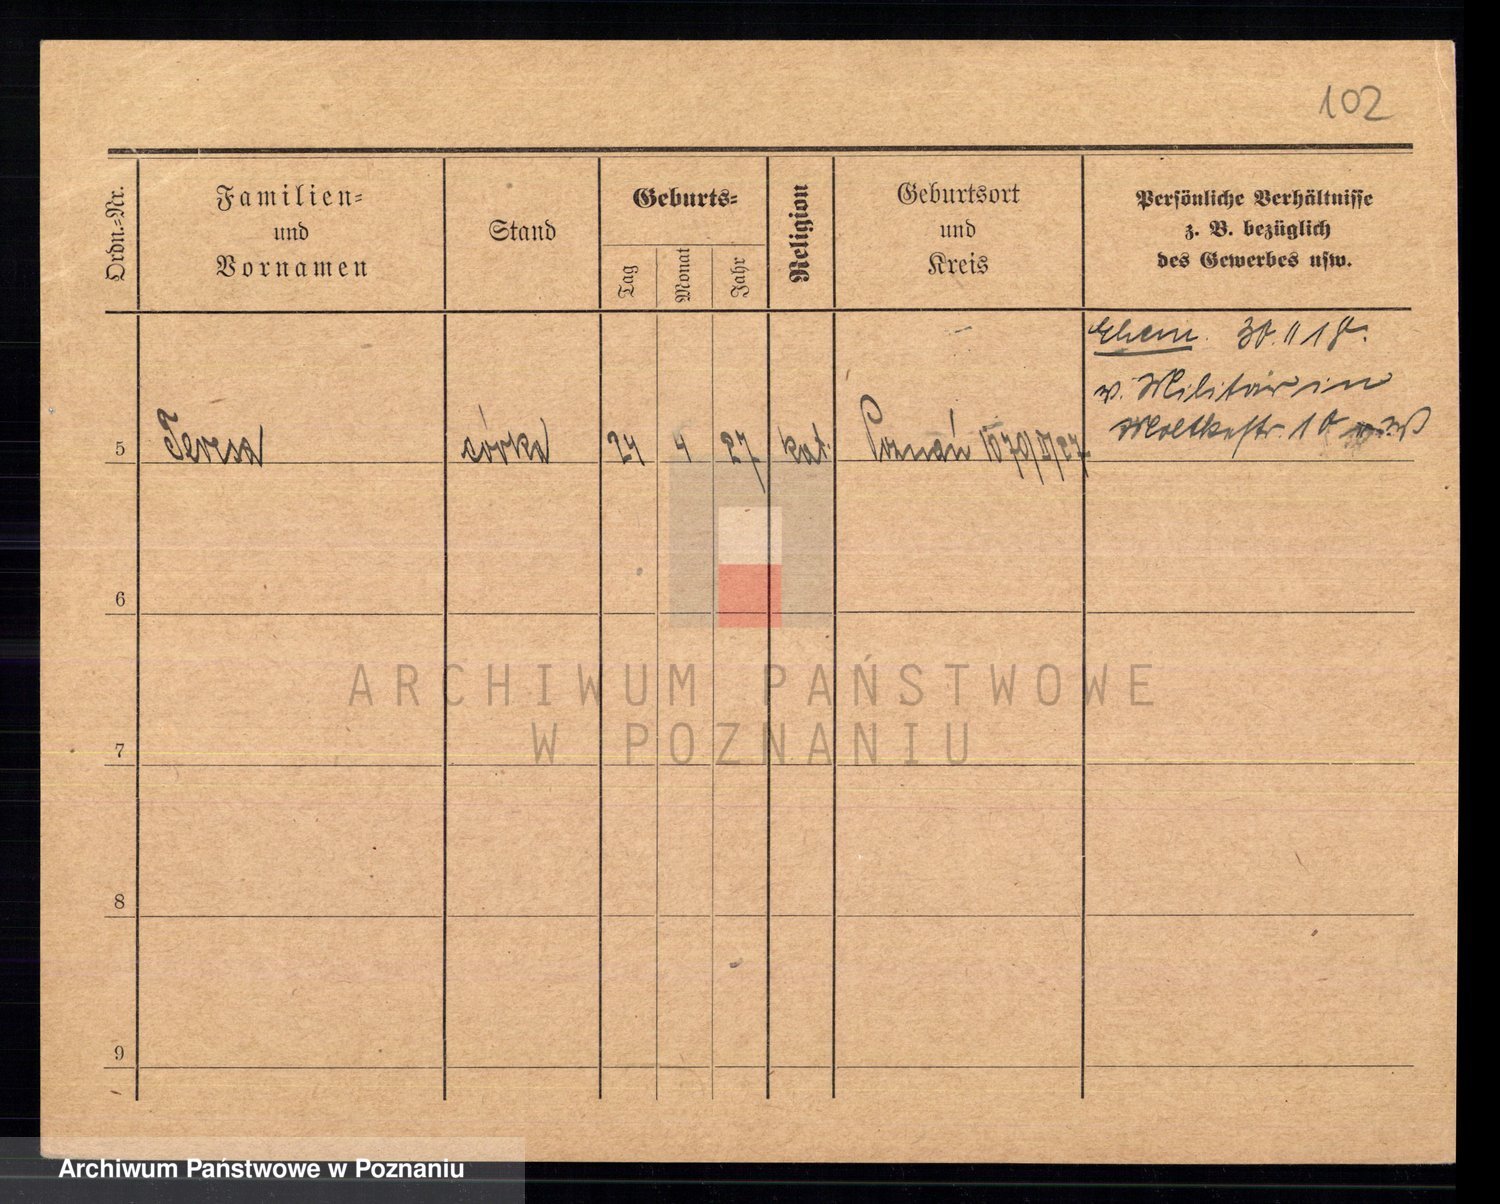 102
Ordn.=Nr.
Familien=
und
Vornamen
Stand
Geburts=
Tag
Monat
Jahr
Religion
Geburtsort
und
Kreis
Persönliche Verhältnisse
z. B. bezüglich
des Gewerbes usw.
Ehem. 30. 11 18.
v. Militär in
Moltkestr. 10
5 Teresa córka 24 4 27 kat. Poznań
6
7
8
9
ARCHIWUM PAŃSTWOWE
W POZNANIU
Archiwum Państwowe w Poznaniu